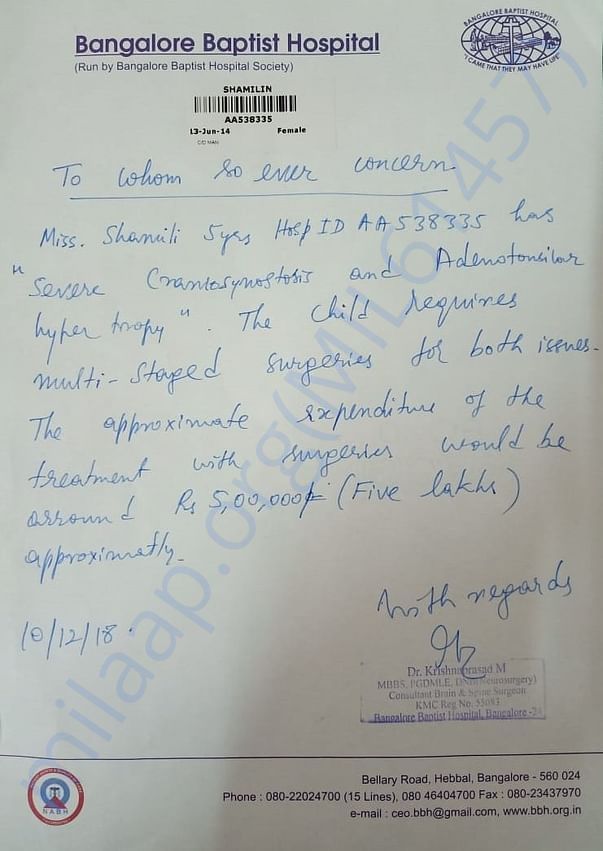 Bangalore Baptist Hospital
(Run by Bangalore Baptist Hospital Society)
BANGALORE BAPTIST HOSPITAL
"I CAME THAT THEY MAY HAVE LIFE"
SHAMILIN
AA538335
13-Jun-14 Female
To whom so ever concern
Miss. Shamili 5yrs Hosp ID AA 538335 has
"Severe Craniosynostosis and Adenotonsilar
hyper tropy". The child requires
multi-staged surgeries for both issues.
The approximate expenditure of the
treatment with surgeries would be
arround Rs 5,00,000/- (Five lakhs)
approximatly.
With regards
10/12/18.
Dr. Krishnaprasad M
MBBS, PGDMLE, DNB(Neurosurgery)
Consultant Brain & Spine Surgeon
KMC Reg No. 55083
Bangalore Baptist Hospital, Bangalore -24
milaap.org(MIL614457)
NABH
Bellary Road, Hebbal, Bangalore - 560 024
Phone : 080-22024700 (15 Lines), 080 46404700 Fax : 080-23437970
e-mail : ceo.bbh@gmail.com, www.bbh.org.in